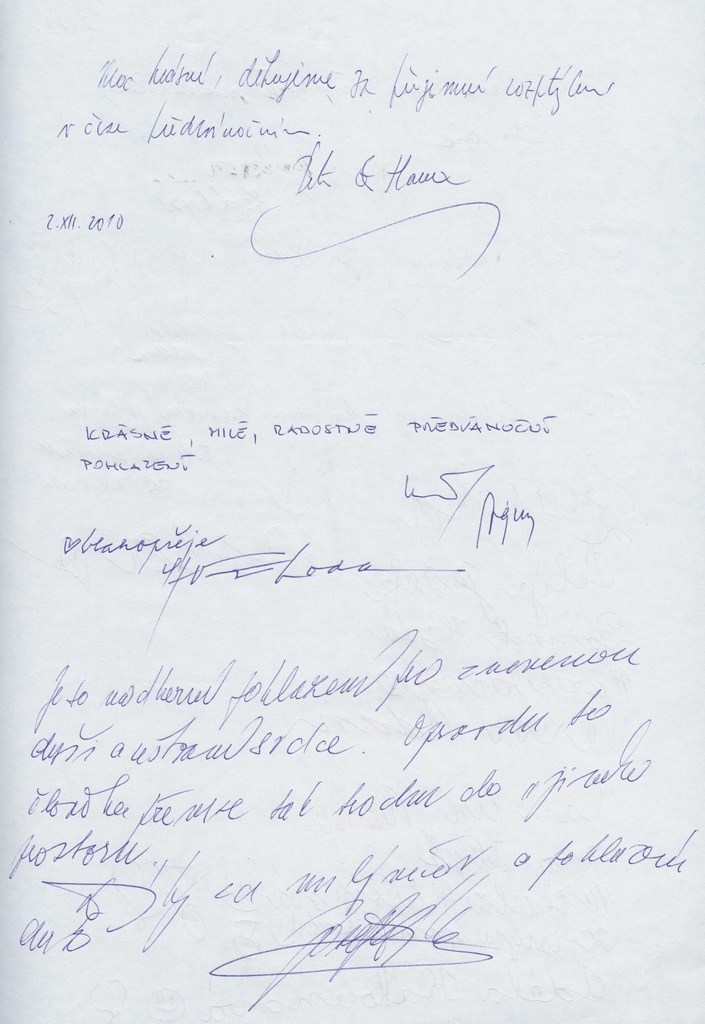 Moc krásné, děkujeme za příjemné rozptýlení
v čase předvánočním.
Petr & Hana
2.XII. 2010
KRÁSNÉ, MILÉ, RADOSTNÉ PŘEDVÁNOČNÍ
POHLAZENÍ
blahopřeje
Je to nádherné pohlazení pro znavenou
duši a ustrané srdce. Opravdu to
člověka přenese tak trochu do "jiného
prostoru."
Díky za milý večer a pohlazení
duše